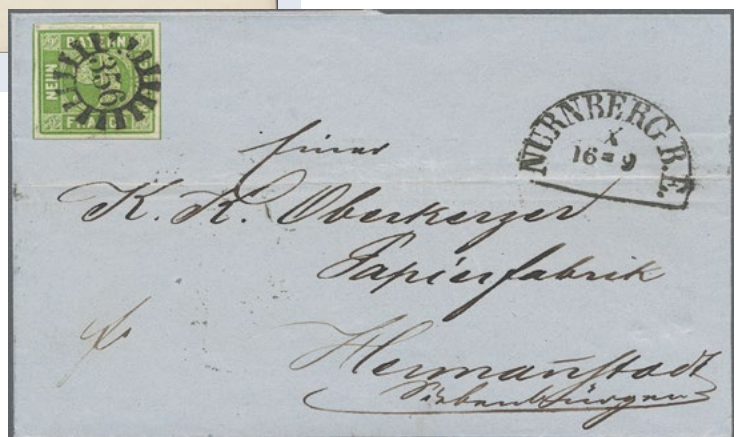 BAYERN
NEUN
356
NÜRNBERG B.E.
X
16 = 9
Einer
K. K. Oberkerzer
Papierfabrik
Hermanstadt
Siebenbürgen